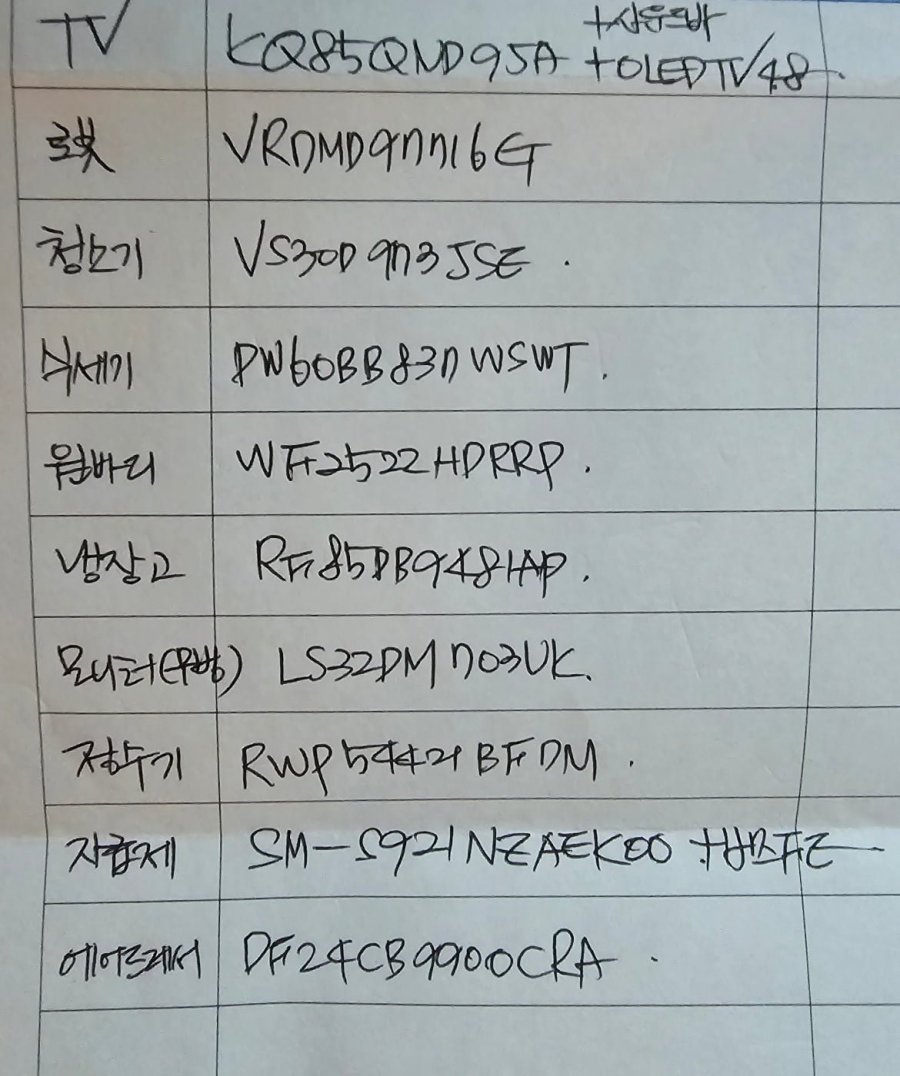 TV KQ85QND95A +사운드바
+OLEDTV48
로봇 VR7MD97716G
청소기 VS30D973JSE.
식세기 DW60BB837WSWT.
원바디 WF2522HDRRP.
냉장고 RF85DB9481AP.
모니터(무빙) LS32DM703UK.
정수기 RWP54421BFDM.
자급제 SM-S921NZAEK00
에어드레서 DF24CB9900CRA.